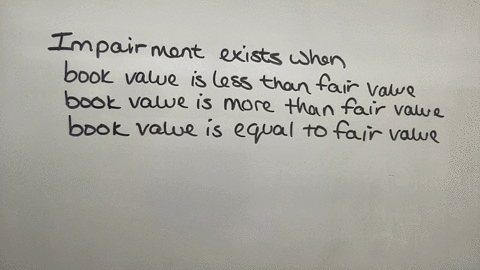 Impairment exists when
book value is less than fair value
book value is more than fair value
book value is equal to fair value